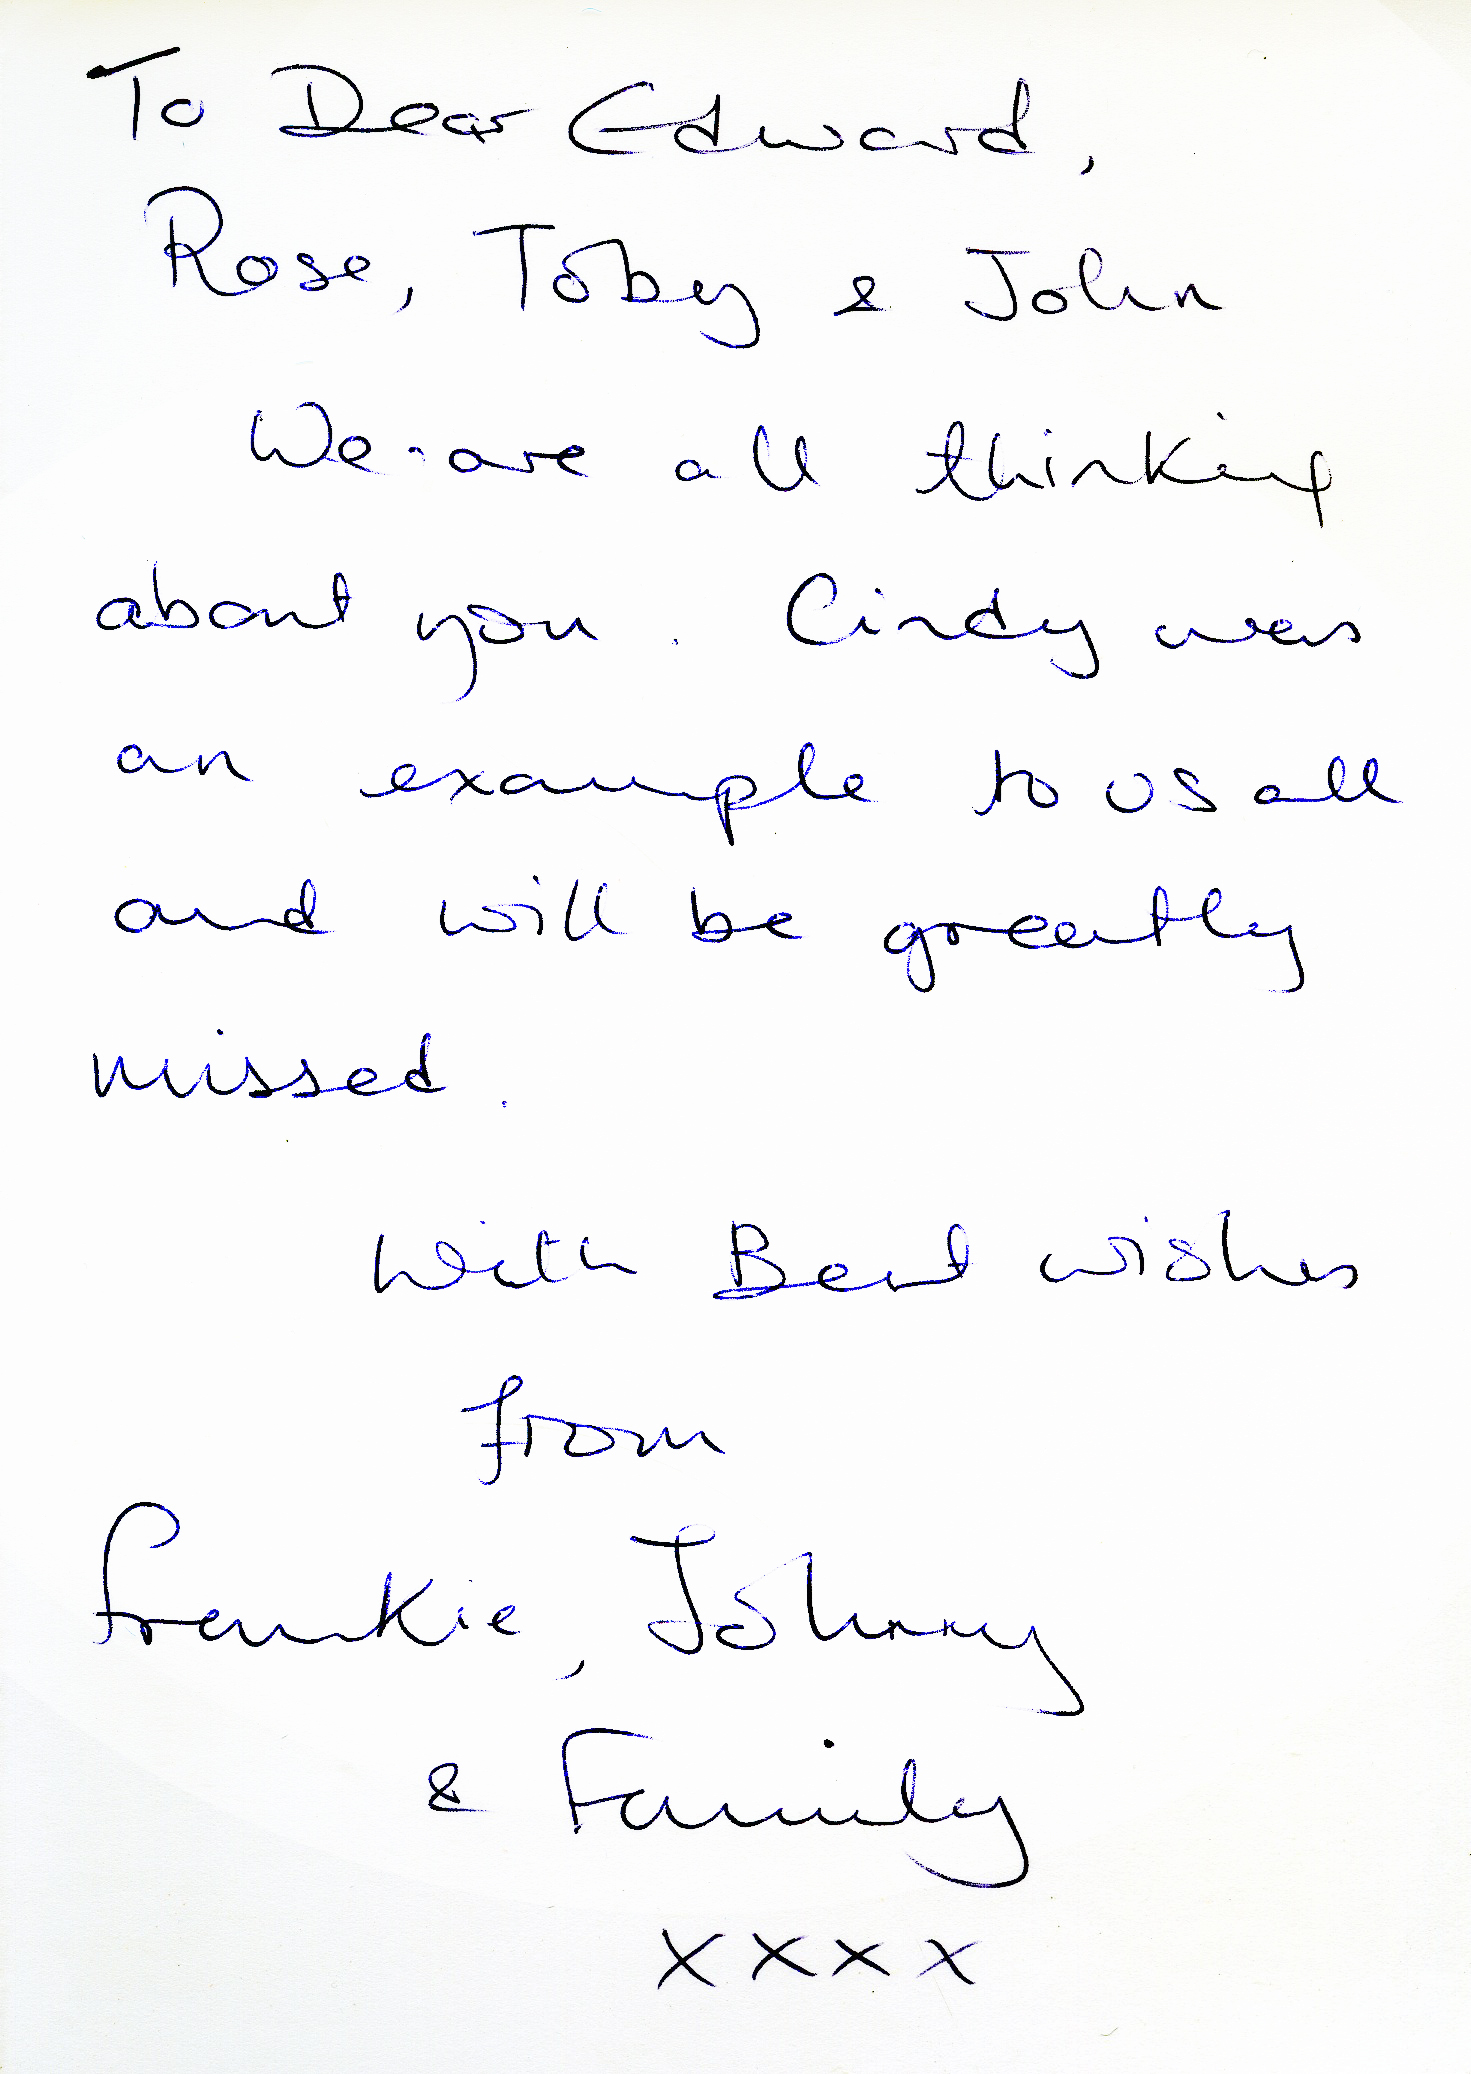 To Dear Edward,
Rose, Toby & John
We are all thinking
about you. Cindy was
an example to us all
and will be greatly
missed.
With Best wishes
from
Frankie, Johnny
& Family
xxxx